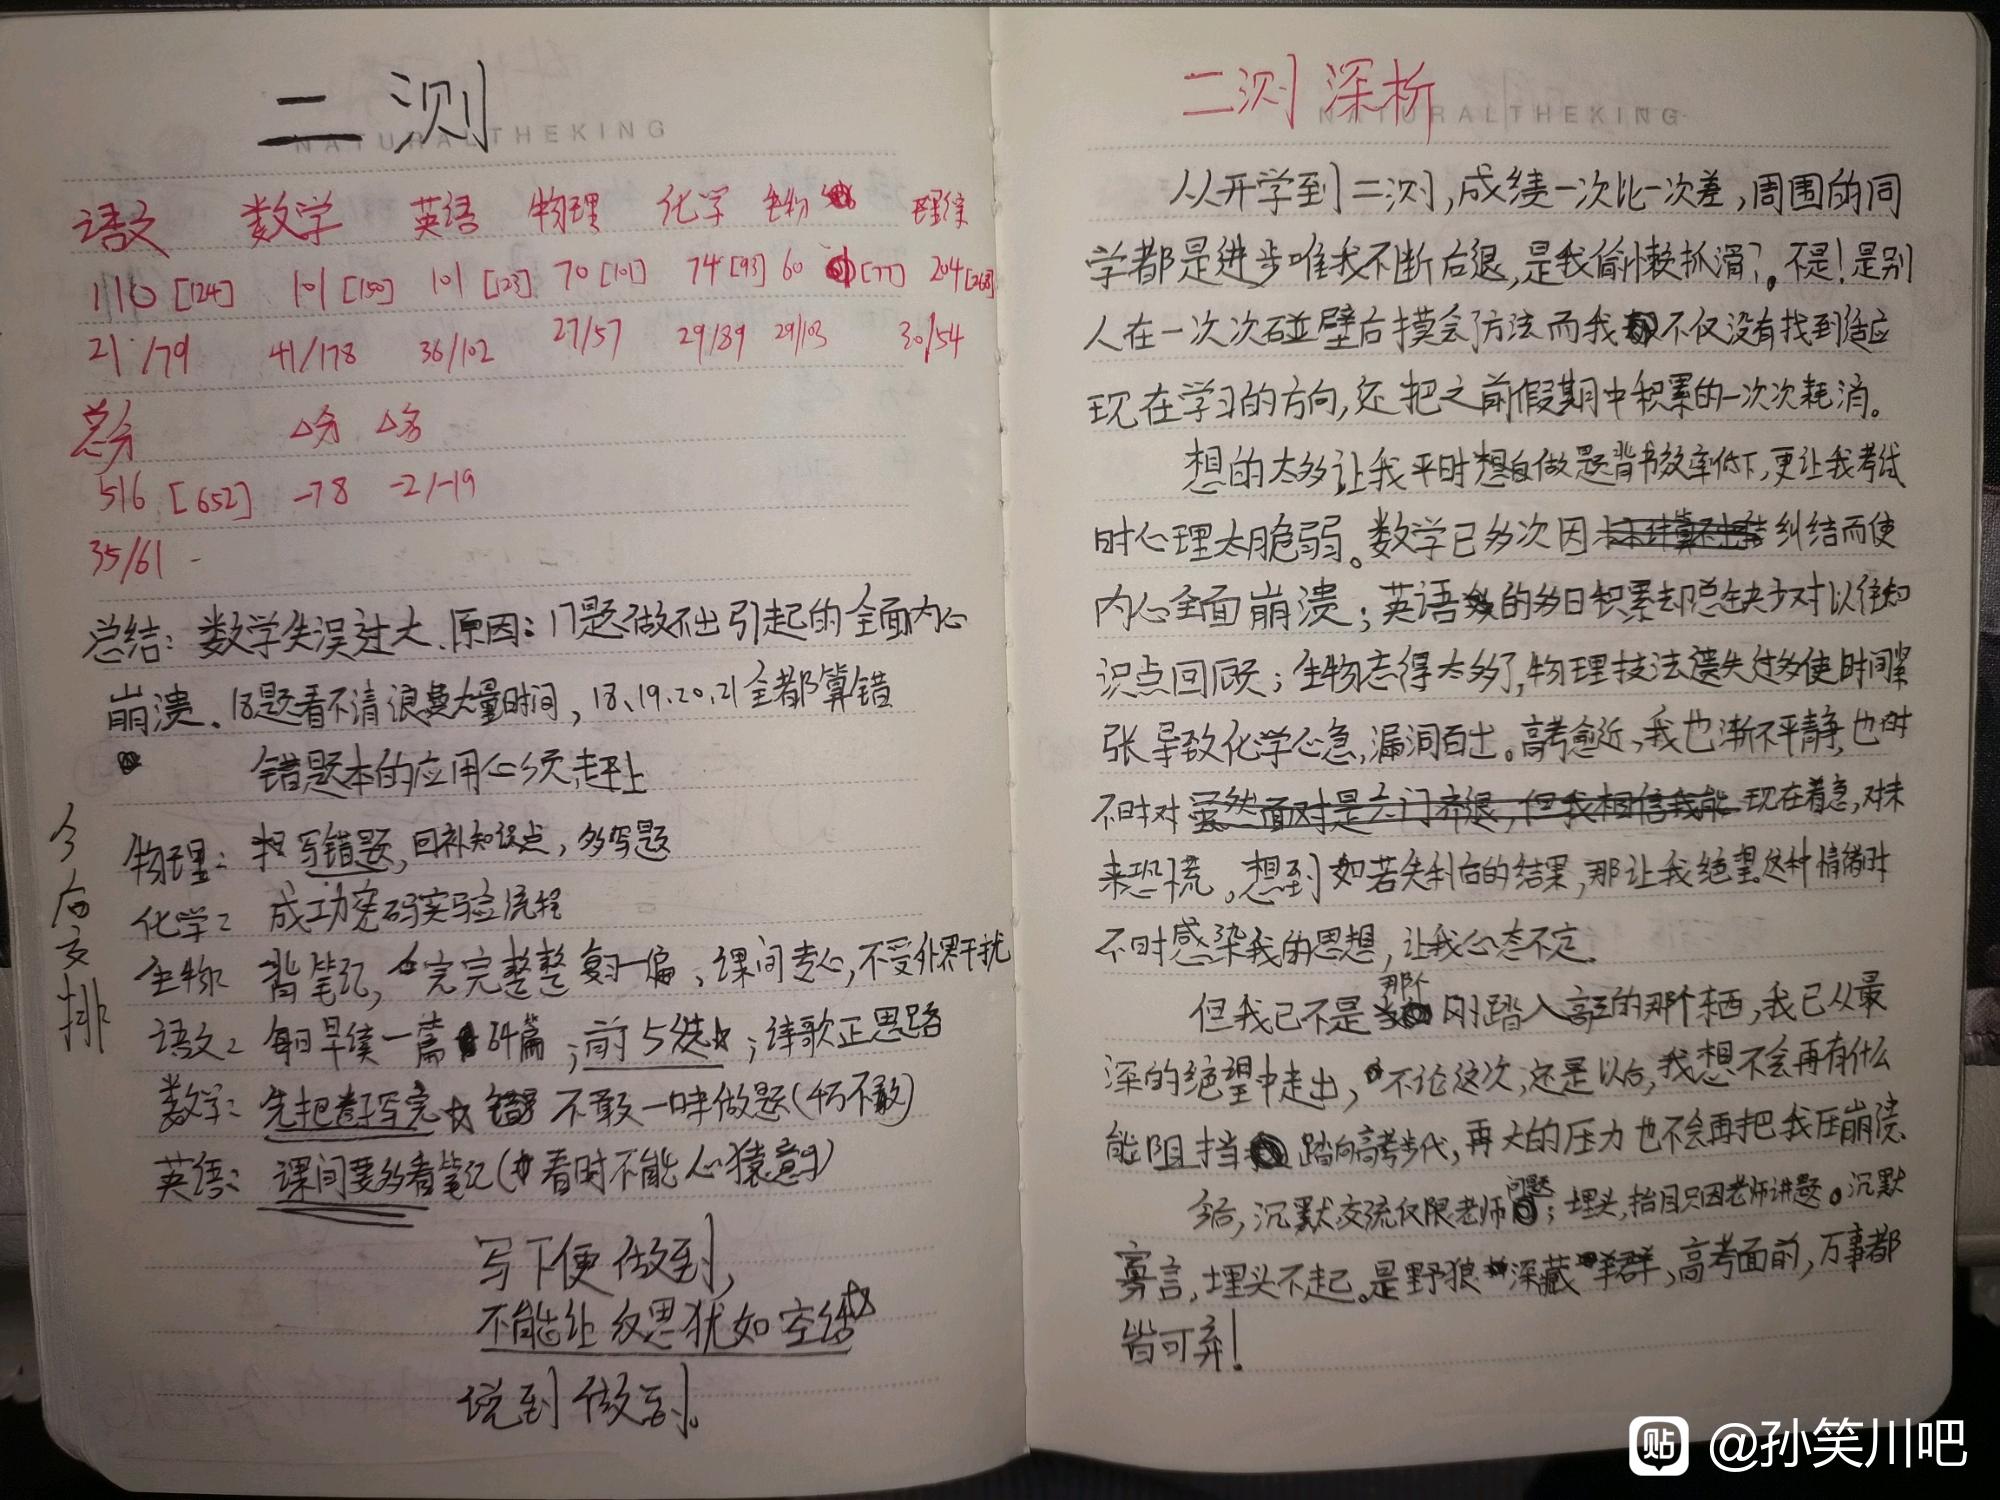 二测
NATURALTHEKING
语文 数学 英语 物理 化学 生物 理综
110 [124] 101 [150] 101 [123] 70 [101] 74 [93] 60 [77] 204 [268]
21/79 41/178 36/102 27/57 29/89 29/103 30/54
总分 △分 △名
516 [652] -78 -2/-19
35/61
总结: 数学失误过大.原因: 17题做不出引起的全面内心
崩溃、18题看不清浪费大量时间, 18、19、20、21全都算错
错题本的应用必须赶上
今后安排
物理: 写错题, 回补知识点, 多写题
化学: 成功密码实验流程
生物: 背笔记, 完完整整复习一遍、课间专心, 不受外界干扰
语文: 每日早读一篇 64篇; 前5选; 诗歌正思路
数学: 先把卷子写完 不敢一味做题(千万不敢)
英语: 课间要多看笔记(看时不能心猿意马)
写下便做到,
不能让反思犹如空话
说到做到。
二测 深析
NATURALTHEKING
从开学到二测, 成绩一次比一次差, 周围的同
学都是进步唯我不断后退, 是我偷懒抓滑?。不是! 是别
人在一次次碰壁后摸会了方法而我不仅没有找到适应
现在学习的方向, 还把之前假期中积累的一次次耗消。
想的太多让我平时做题背书效率低下, 更让我考试
时心理太脆弱。数学已多次因纠结而使
内心全面崩溃; 英语的多日积累却总缺少对以往知
识点回顾; 生物忘得太多了, 物理技法遗失过多使时间紧
张导致化学心急, 漏洞百出。高考愈近, 我也渐不平静, 也时
不时对虽然面对是六门齐退, 但我相信我能现在着急, 对未
来恐慌, 想到如若失利后的结果, 那让我绝望。这种情绪时
不时感染我的思想, 让我心态不定.
但我已不是那个刚踏入高三的那个东西, 我已从最
深的绝望中走出, 不论这次, 还是以后, 我想不会再有什么
能阻挡踏向高考步伐, 再大的压力也不会再把我压崩溃.
今后, 沉默交流仅限老师问题; 埋头, 抬目只因老师讲题。沉默
寡言, 埋头不起。是野狼深藏羊群, 高考面前, 万事都
皆可弃!
贴 @孙笑川吧